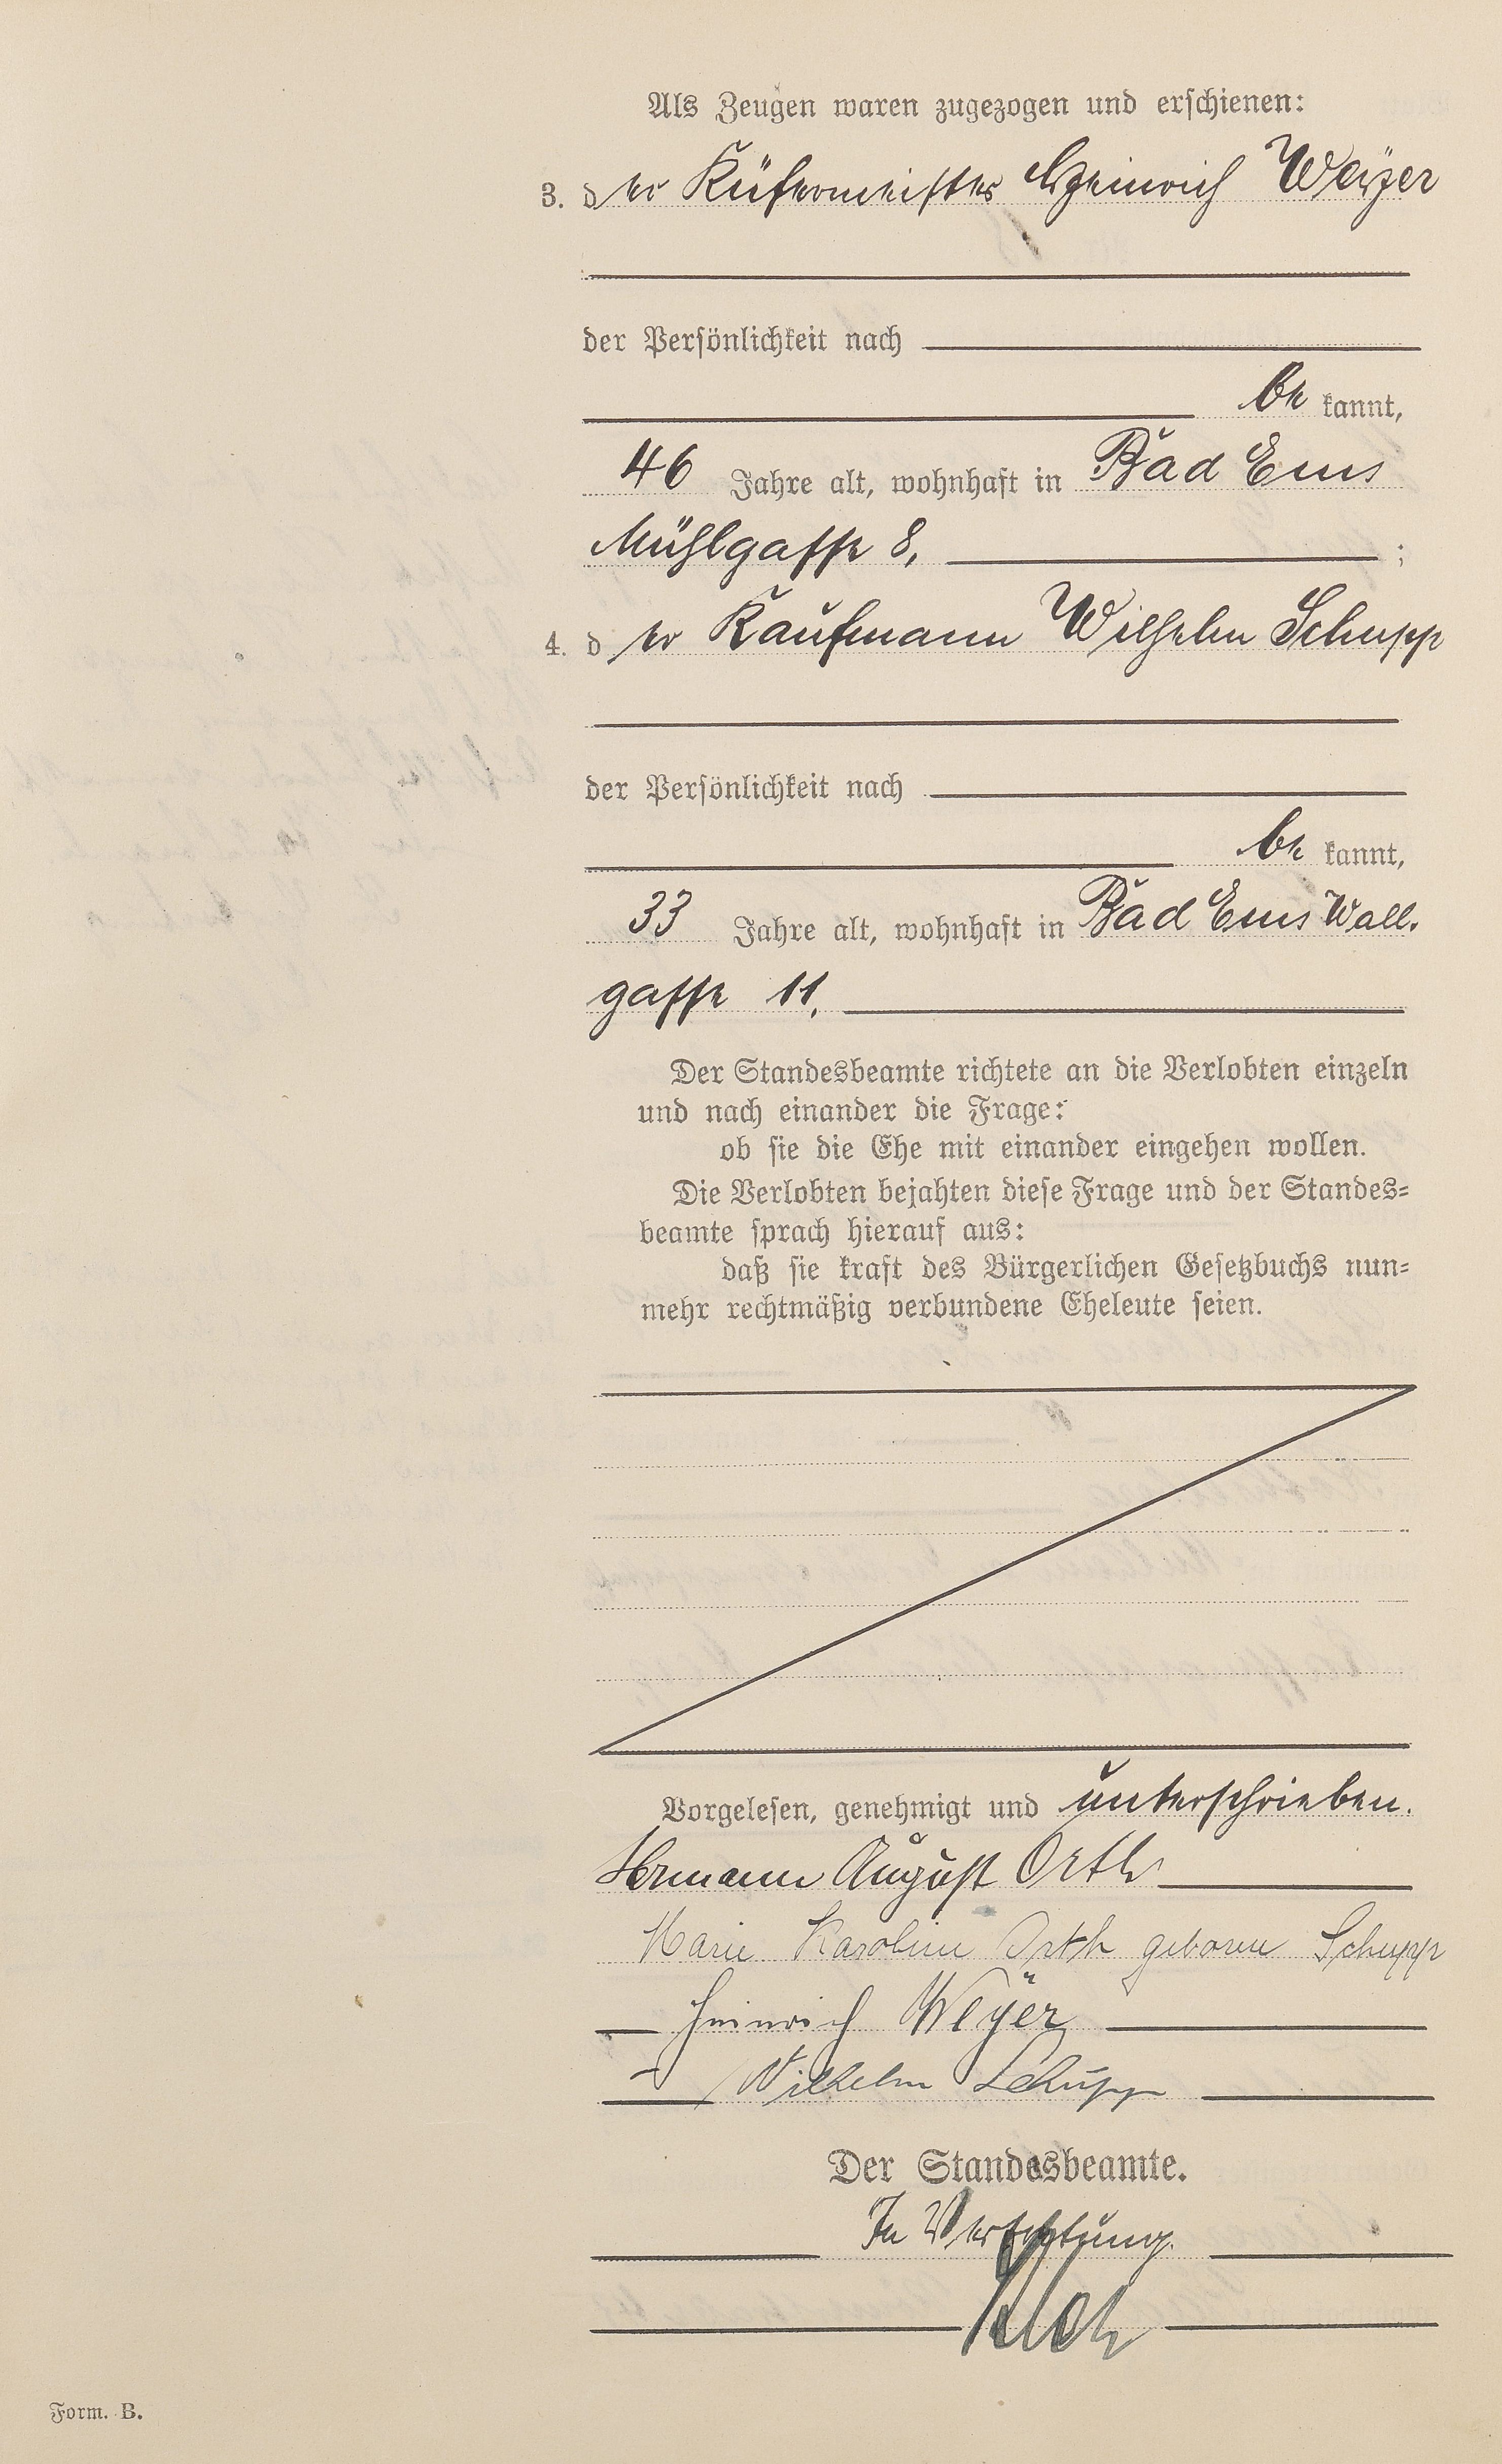 Als Zeugen waren zugezogen und erschienen:
3. der Küfermeister Heinrich Weÿer
der Persönlichkeit nach
be kannt,
46 Jahre alt, wohnhaft in Bad Ems
Mühlgasse 8, ;
4. der Kaufmann Wilhelm Schupp
der Persönlichkeit nach
be kannt,
33 Jahre alt, wohnhaft in Bad Ems Wall-
gasse 11,
Der Standesbeamte richtete an die Verlobten einzeln
und nach einander die Frage:
ob sie die Ehe mit einander eingehen wollen.
Die Verlobten bejahten diese Frage und der Standes=
beamte sprach hierauf aus:
daß sie kraft des Bürgerlichen Gesetzbuchs nun=
mehr rechtmäßig verbundene Eheleute seien.
Vorgelesen, genehmigt und unterschrieben.
Hermann August Orth
Marie Karoline Orth geborene Schupp
Heinrich Weÿer
Wilhelm Schupp
Der Standesbeamte.
In Vertretung.
Form. B.